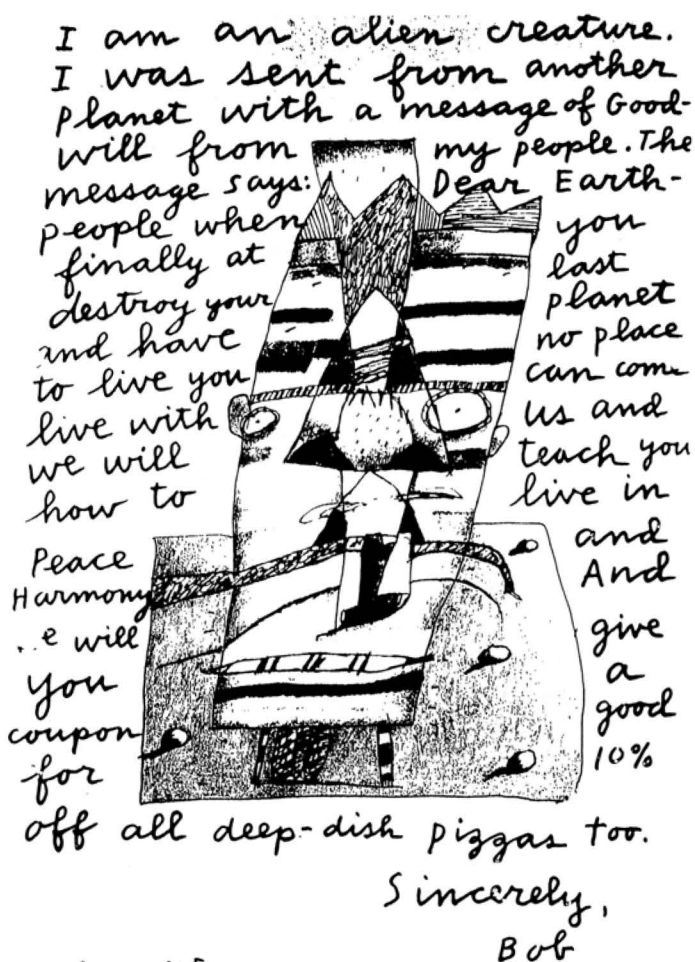 I am an alien creature.
I was sent from another
planet with a message of Good-
will from my people. The
message says: Dear Earth-
people when you
finally at last
destroy your planet
and have no place
to live you can come
live with us and
we will teach you
how to live in
Peace and
Harmony And
will give
you a
coupon good
for 10%
off all deep-dish pizzas too.
Sincerely,
Bob